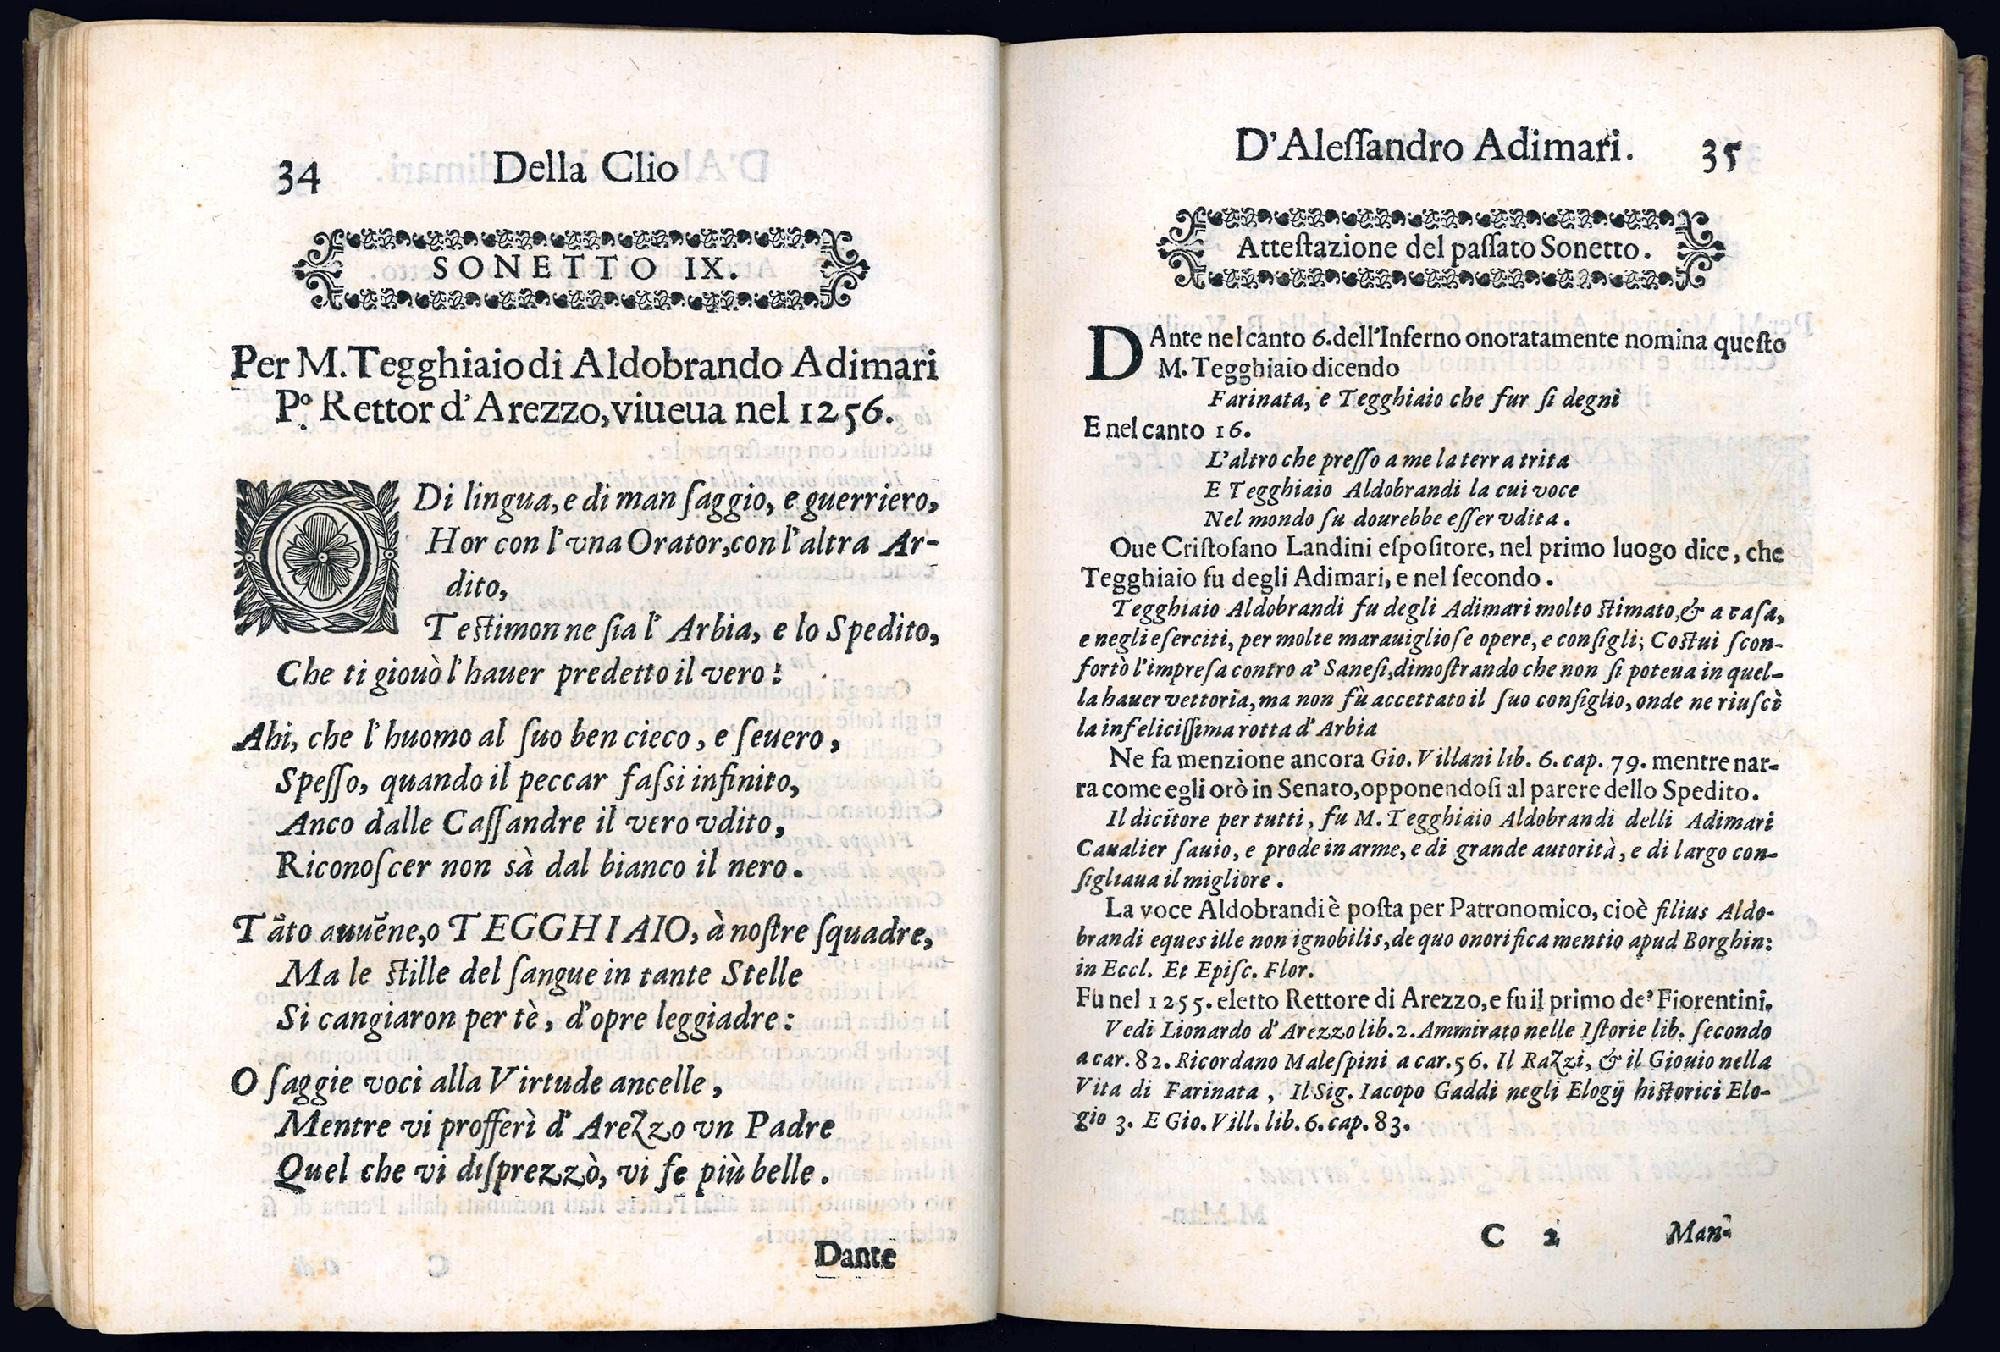 34 Della Clio
SONETTO IX.
Per M. Tegghiaio di Aldobrando Adimari
Pº. Rettor d'Arezzo, viueua nel 1256.
O Di lingua, e di man ſaggio, e guerriero,
Hor con l'vna Orator, con l'altra Ar-
dito,
Teſtimon ne ſia l'Arbia, e lo Spedito,
Che ti giouò l'hauer predetto il vero!
Ahi, che l'huomo al ſuo ben cieco, e ſeuero,
Speſſo, quando il peccar faſsi infinito,
Anco dalle Caſſandre il vero vdito,
Riconoſcer non sà dal bianco il nero.
Tãto auuẽne, o TEGGHIAIO, à noſtre ſquadre,
Ma le ſtille del ſangue in tante Stelle
Si cangiaron per tè, d'opre leggiadre:
O ſaggie voci alla Virtude ancelle,
Mentre vi profferì d'Arezzo vn Padre
Quel che vi diſprezzò, vi fe più belle.
Dante
D'Aleſſandro Adimari. 35
Atteſtazione del paſſato Sonetto.
DAnte nel canto 6. dell'Inferno onoratamente nomina queſto
M. Tegghiaio dicendo
Farinata, e Tegghiaio che fur ſi degni
E nel canto 16.
L'altro che preſſo a me la terra trita
E Tegghiaio Aldobrandi la cui voce
Nel mondo ſu dourebbe eſſer vdita.
Oue Criſtofano Landini eſpoſitore, nel primo luogo dice, che
Tegghiaio fu degli Adimari, e nel ſecondo.
Tegghiaio Aldobrandi fu degli Adimari molto ſtimato, & a caſa,
e negli eſerciti, per molte marauiglioſe opere, e conſigli; Coſtui ſcon-
fortò l'impreſa contro a' Saneſi, dimoſtrando che non ſi poteua in quel-
la hauer vettoria, ma non fù accettato il ſuo conſiglio, onde ne riuſcì
la infeliciſſima rotta d'Arbia
Ne fa menzione ancora Gio. Villani lib. 6. cap. 79. mentre nar-
ra come egli orò in Senato, opponendoſi al parere dello Spedito.
Il dicitore per tutti, fu M. Tegghiaio Aldobrandi delli Adimari
Caualier ſauio, e prode in arme, e di grande autorità, e di largo con-
ſigliaua il migliore.
La voce Aldobrandi è poſta per Patronomico, cioè filius Aldo-
brandi eques ille non ignobilis, de quo onorifica mentio apud Borghin:
in Eccl. Et Epiſc. Flor.
Fu nel 1255. eletto Rettore di Arezzo, e fu il primo de' Fiorentini.
Vedi Lionardo d'Arezzo lib. 2. Ammirato nelle Iſtorie lib. ſecondo
a car. 82. Ricordano Maleſpini a car. 56. Il Razzi, & il Giouio nella
Vita di Farinata, Il Sig. Iacopo Gaddi negli Elogij hiſtorici Elo-
gio 3. E Gio. Vill. lib. 6. cap. 83.
C 2 Man-